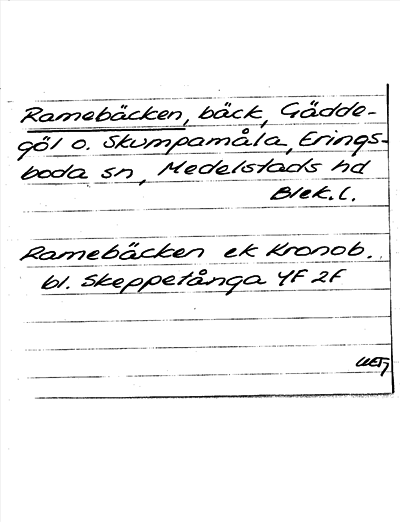 Ramebäcken, bäck, Gädde-
göl o. Skumpamåla, Erings-
boda sn, Medelstads hd
Blek. l.
Ramebäcken ek Kronob.
bl. Skeppetånga 4F 2F